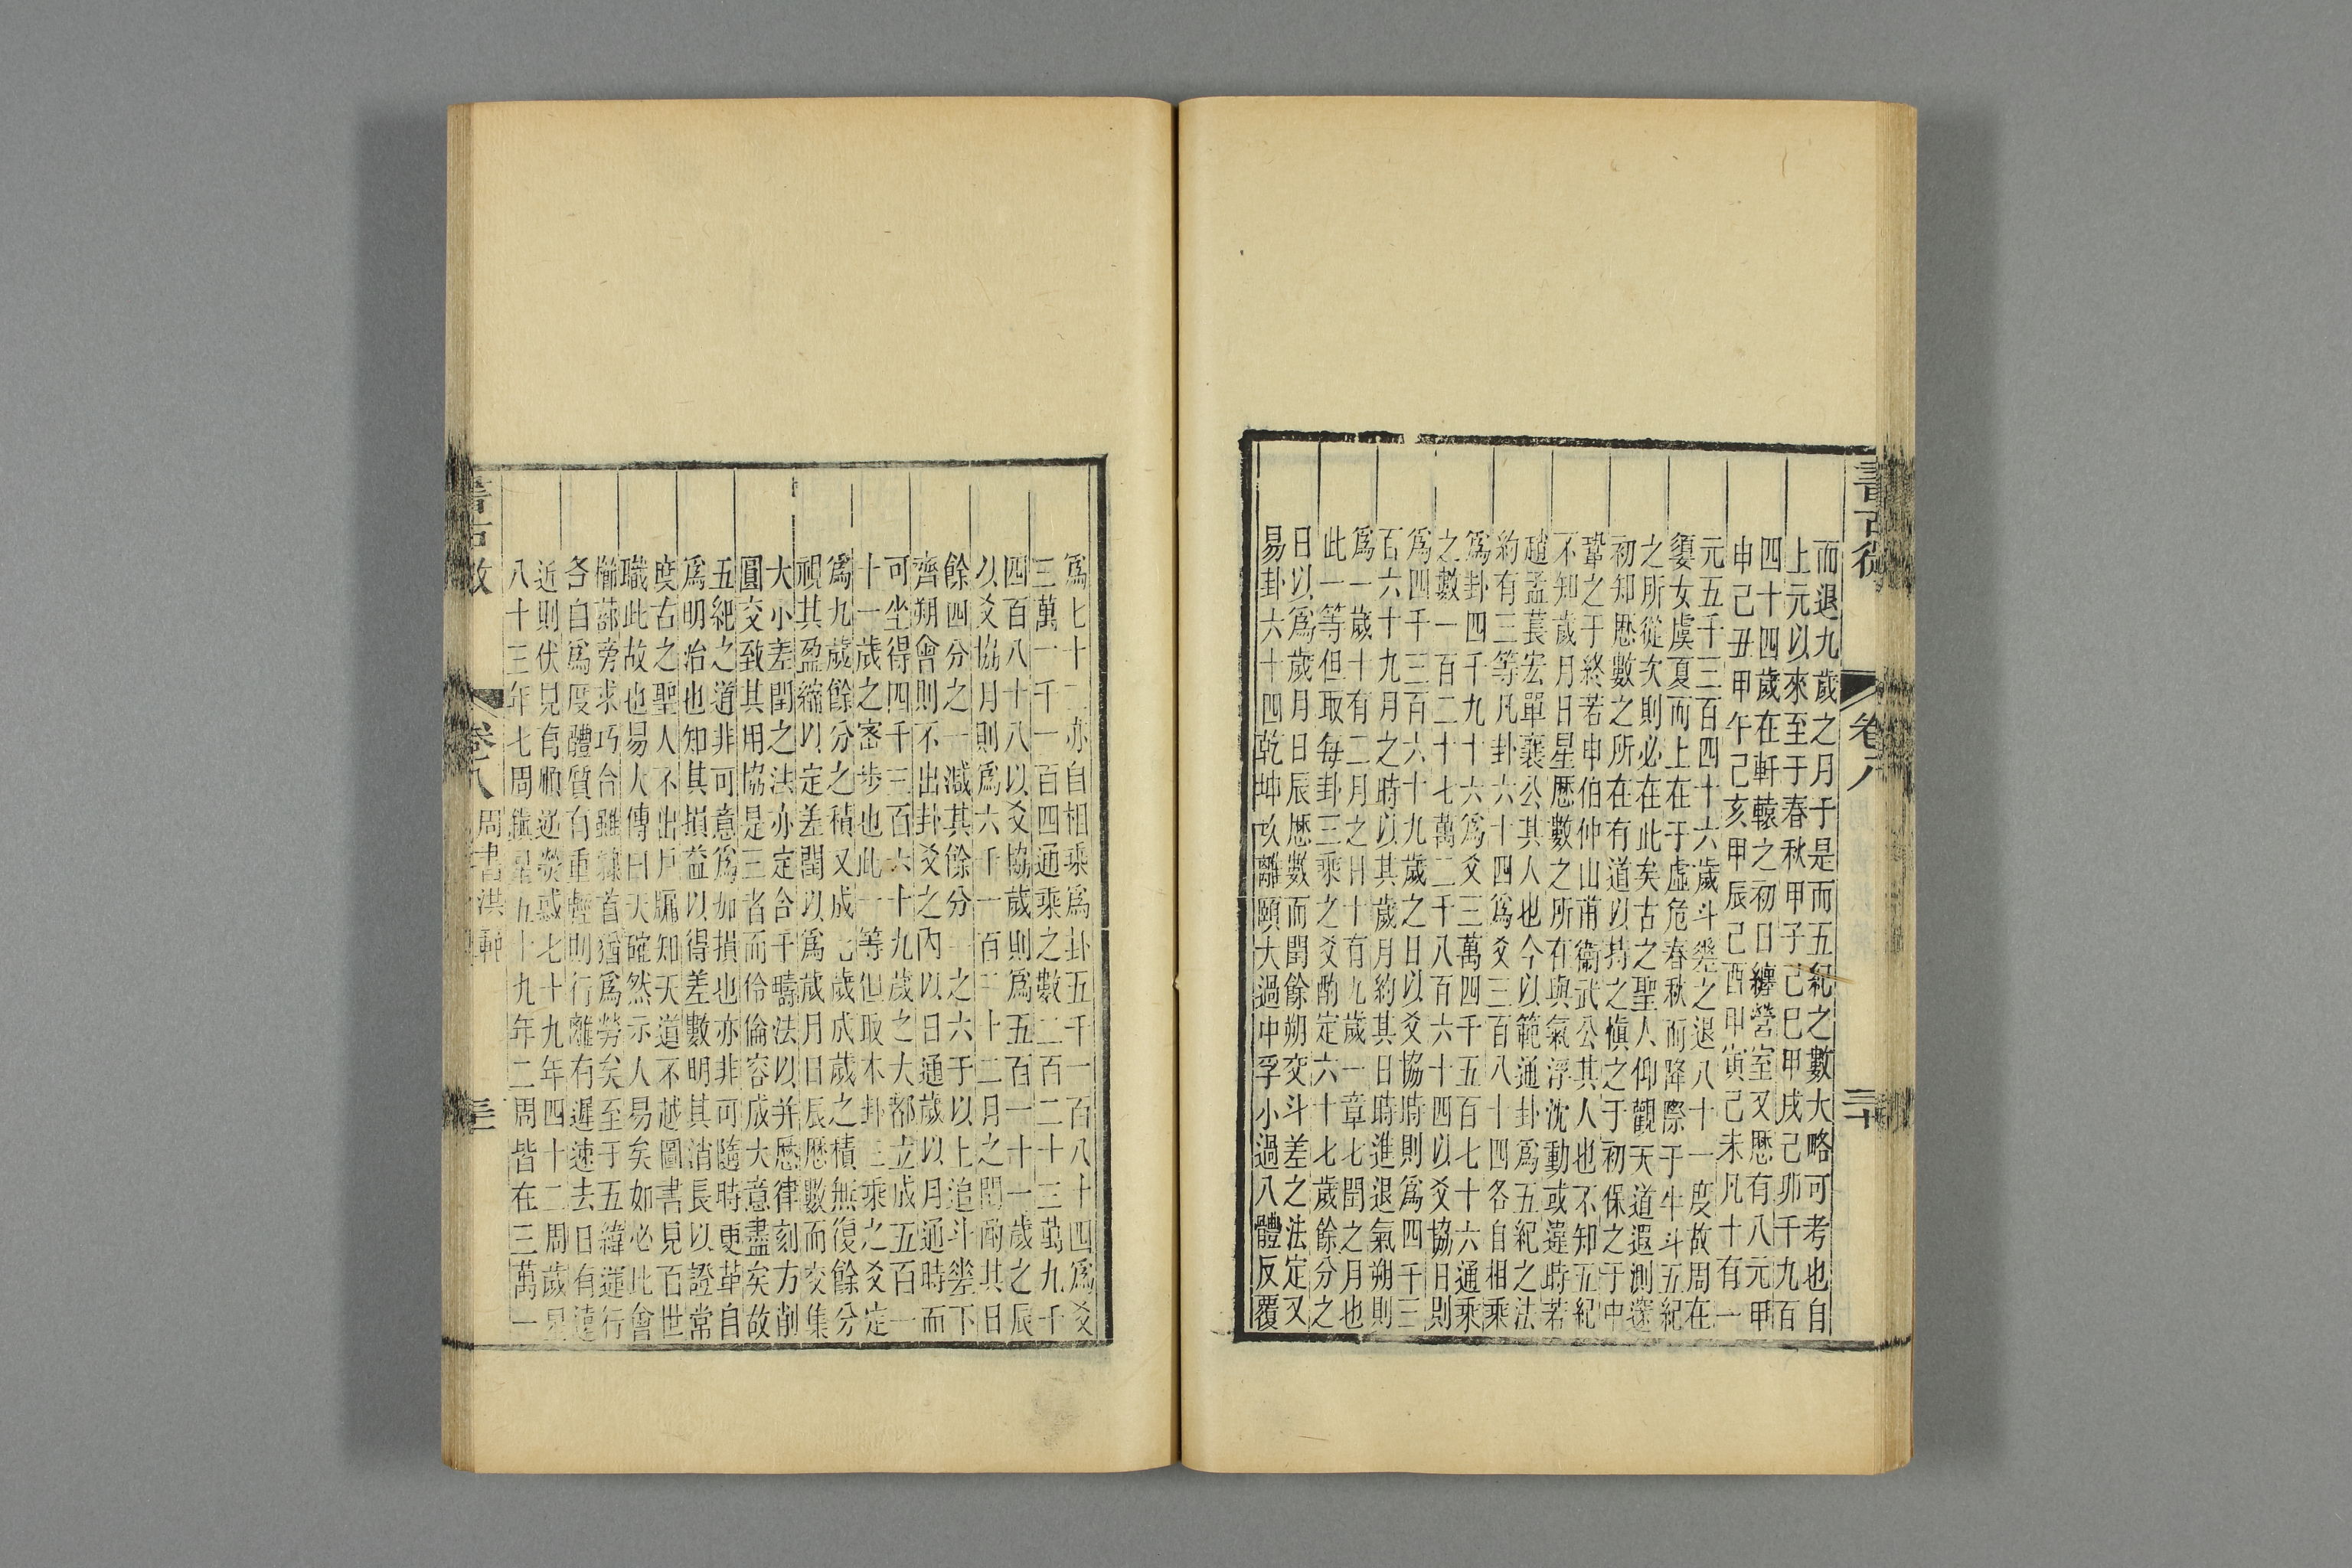 卷八
三十
而退九歲之月于是而五紀之數大略可考也自
上元以來至于春秋甲子己巳甲戌己卯千九百
四十四歲在軒轅之初日纏營室又厯有八元甲
申己丑甲午己亥甲辰己酉甲寅己未凡十有一
元五千三百四十六歲斗幾之退八十一度故周在
婺女虞夏而上在于虛危春秋而降際于牛斗五紀
之所從次則必在此矣古之聖人仰觀天道遐測遠
初知厯數之所在有道以持之愼之于初保之于中
鞏之于終若申伯仲山甫衞武公其人也不知五紀
不知歲月日星厯數之所在與氣浮沈動或違時若
趙孟萇宏單襄公其人也今以範通卦爲五紀之法
約有三等凡卦六十四爲爻三百八十四各自相乘
爲卦四千九十六爲爻三萬四千五百七十六通乘
之數一百二十七萬二千八百六十四以爻協日則
爲四千三百六十九歲之日以爻協時則爲四千三
百六十九月之時以其歲月約其日時進退氣朔則
爲一歲十有二月之日十有九歲一章七閏之月也
此一等但取每卦三乘之爻酌定六十七歲餘分之
日以爲歲月日辰厯數而閏餘朔交斗差之法定又
易卦六十四乾坤坎離頤大過中孚小過八體反覆
爲七十二亦自相乘爲卦五千一百八十四爲爻
三萬一千一百四通乘之數二百二十三萬九千
四百八十八以爻協歲則爲五百一十一歲之辰
以爻協月則爲六千一百三十二月之閏酌其日
餘四分之一減其餘分一之六于以上追斗幾下
齊朔會則不出卦爻之內以日通歲以月通時而
可坐得四千三百六十九歲之大都立成五百一
十一歲之密步也此一等但取本卦三乘之爻定
爲九歲餘分之積又成七歲成歲之積無復餘分
視其盈縮以定差閏以爲歲月日辰厯數而交集
大小差閏之法亦定合干疇法以并厯律刻方削
圓交致其用協是三者而伶倫容成大意盡矣故
五紀之道非可意爲如損也亦非可隨時更革自
爲明治也知其損益以得差數明其消長以證常
度古之聖人不出戶牖知天道不越圖書見百世
職此故也易大傳曰夫確然示人易矣如必此會
櫛蔀旁求巧合雖隸首猶爲勞矣至于五緯運行
各自爲度體質有重輕則行離有遲速去日有遠
近則伏見有順逆熒惑七十九年四十二周歲星
八十三年七周鎭星五十九年二周皆在三萬一
卷八
周書洪範